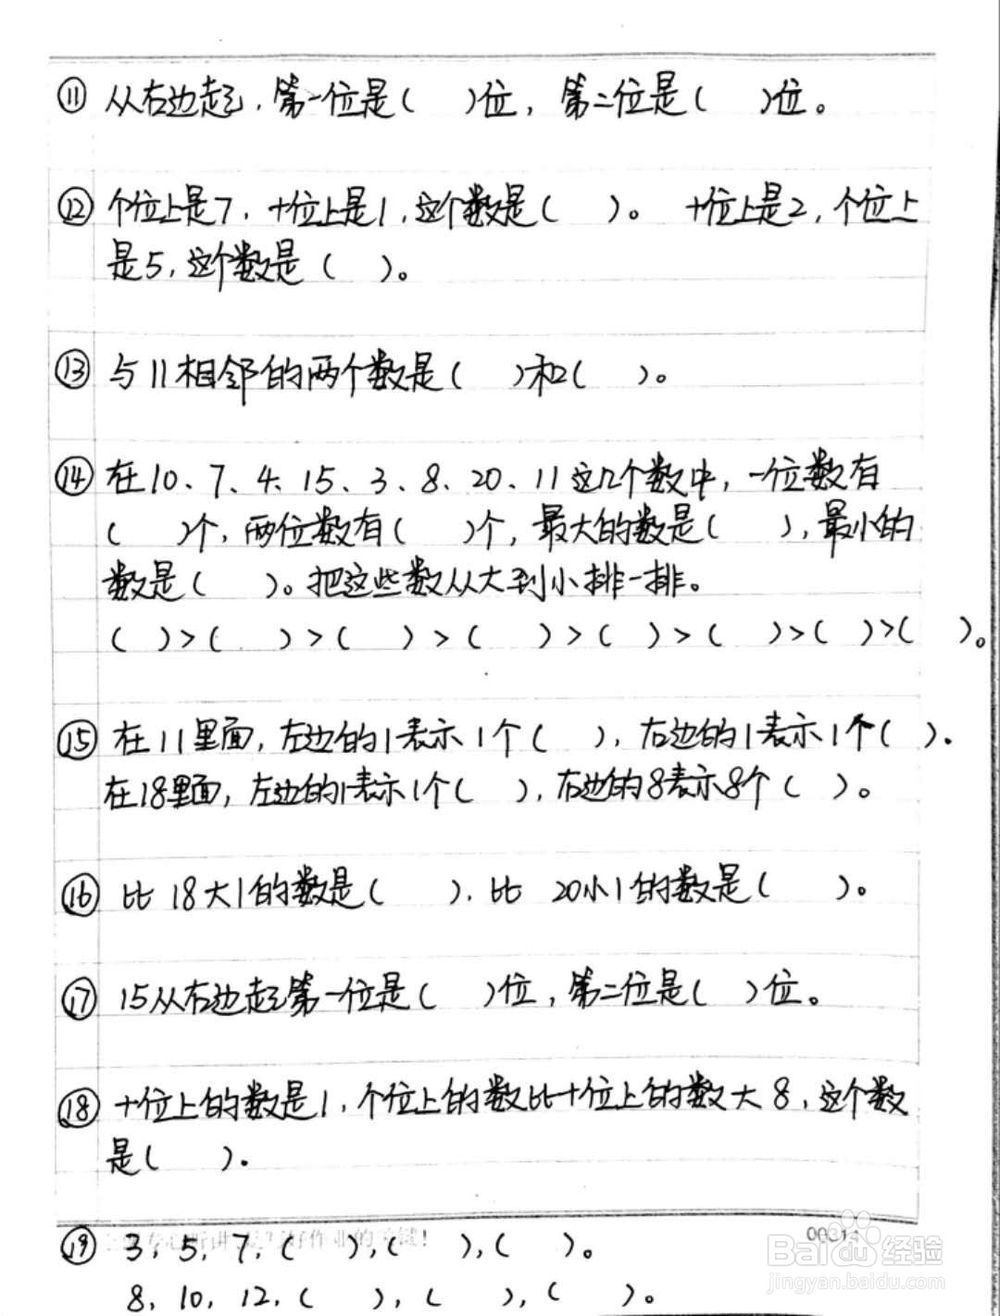 ⑪ 从右边起，第一位是（ ）位，第二位是（ ）位。
⑫ 个位上是7，十位上是1，这个数是（ ）。 十位上是2，个位上
是5，这个数是（ ）。
⑬ 与11相邻的两个数是（ ）和（ ）。
⑭ 在10、7、4、15、3、8、20、11这几个数中，一位数有
（ ）个，两位数有（ ）个，最大的数是（ ），最小的
数是（ ）。把这些数从大到小排一排。
（ ）>（ ）>（ ）>（ ）>（ ）>（ ）>（ ）>（ ）。
⑮ 在11里面，左边的1表示1个（ ），右边的1表示1个（ ）.
在18里面，左边的1表示1个（ ），右边的8表示8个（ ）。
⑯ 比18大1的数是（ ），比 20小1的数是（ ）。
⑰ 15从右边起第一位是（ ）位，第二位是（ ）位。
⑱ 十位上的数是1，个位上的数比十位上的数大8，这个数
是（ ）.
⑲ 3，5，7，（ ），（ ），（ ）。
8，10，12，（ ），（ ），（ ）。
Baidu 经验
jingyan.baidu.com